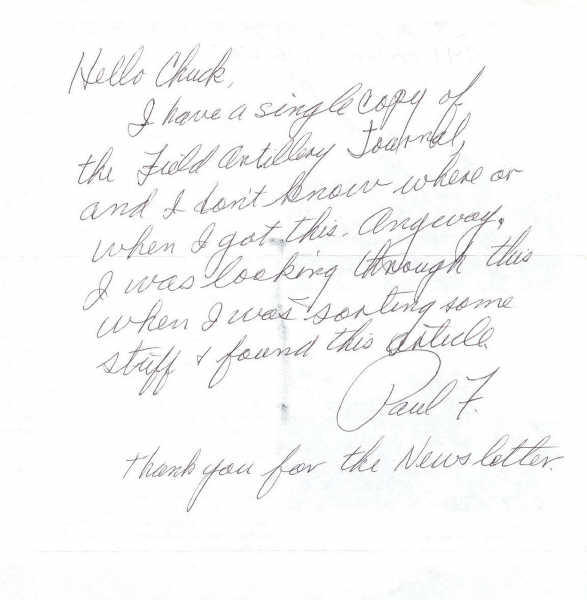 Hello Chuck,
I have a single copy of
the Field Artillery Journal,
and I don't know where or
when I got this. Anyway,
I was looking through this
when I was sorting some
stuff & found this article.
Paul F.
Thank you for the Newsletter.